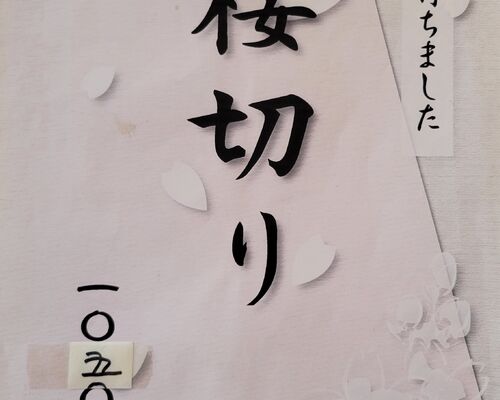 打ちました
桜切り
一〇五〇